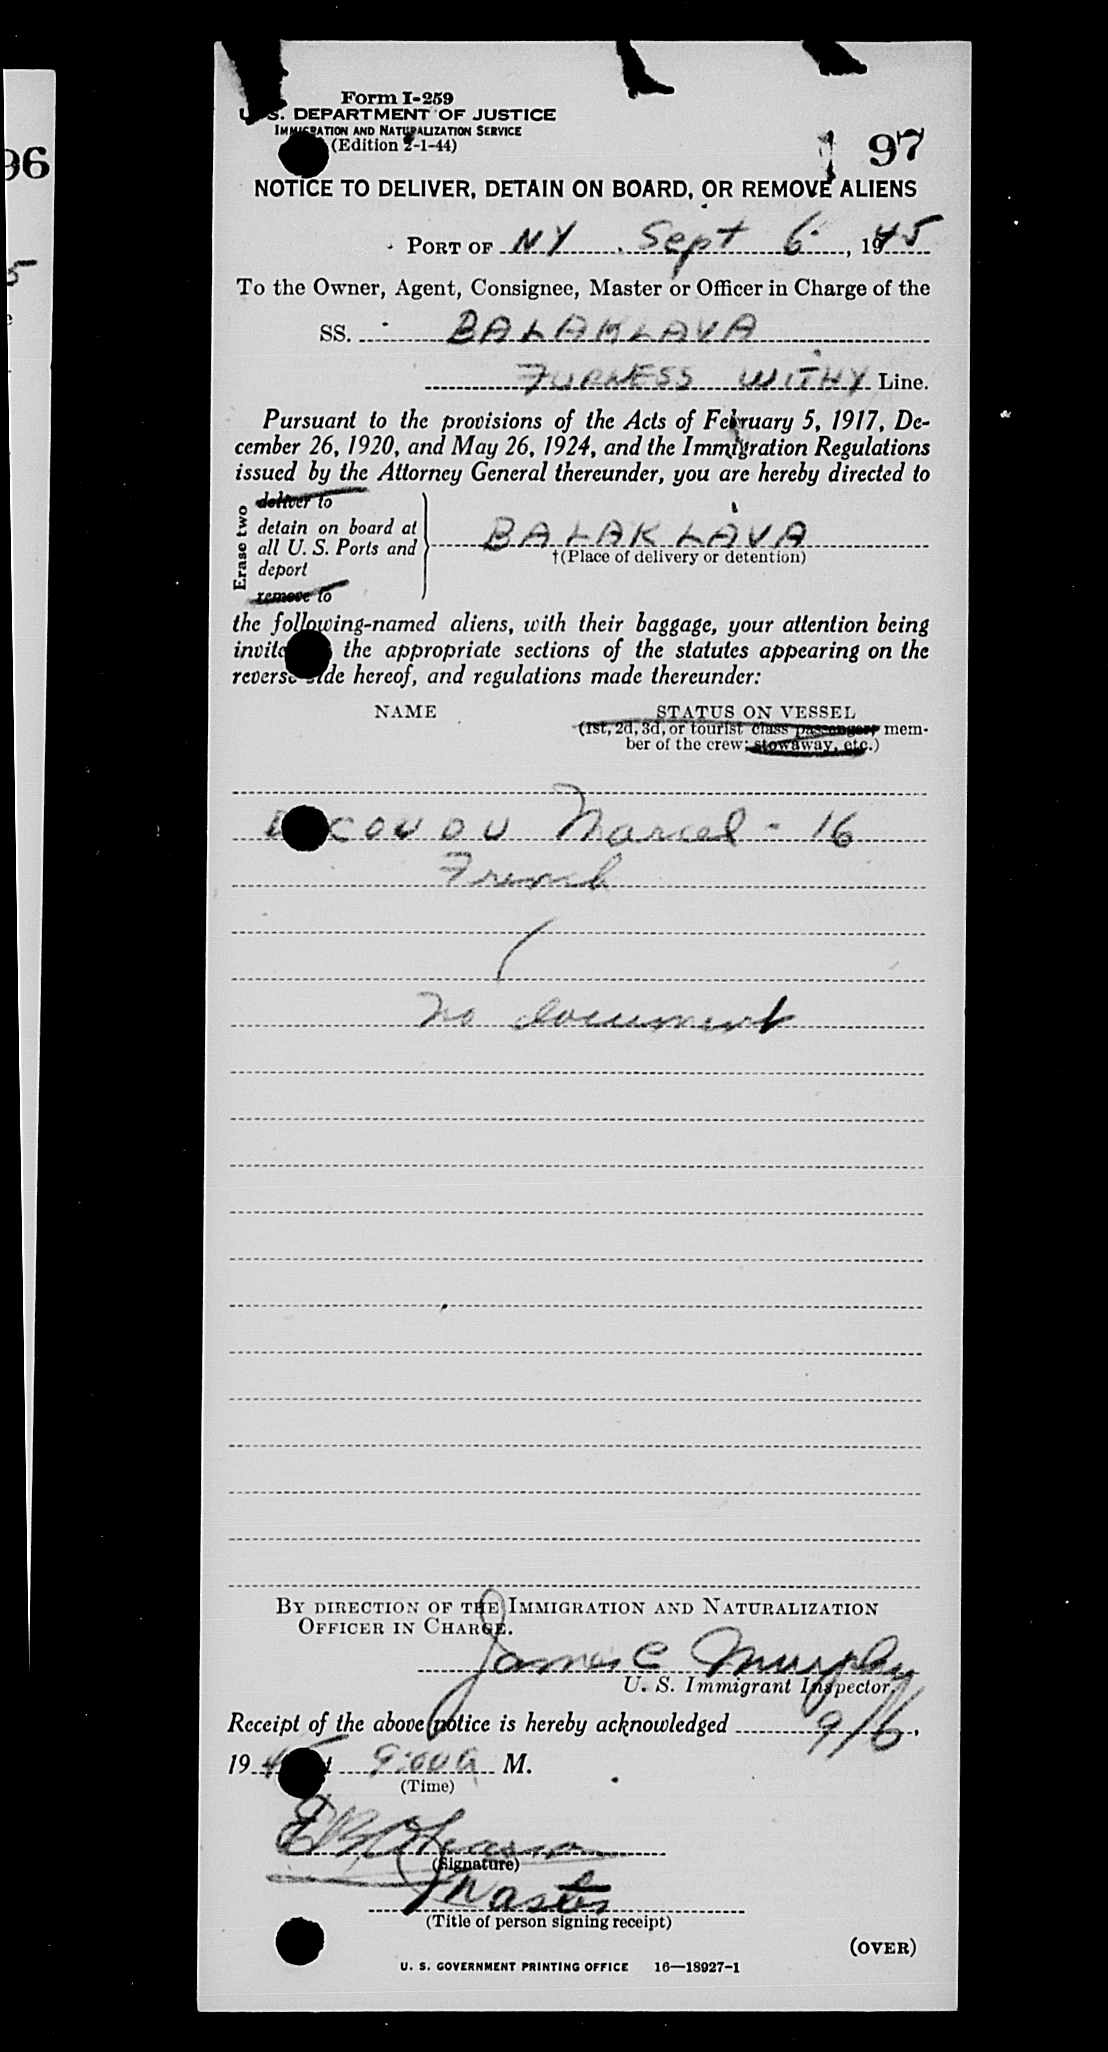 96
5
Form I-259
U. S. DEPARTMENT OF JUSTICE
IMMIGRATION AND NATURALIZATION SERVICE
(Edition 2-1-44)
97
NOTICE TO DELIVER, DETAIN ON BOARD, OR REMOVE ALIENS
PORT OF NY Sept 6, 1945
To the Owner, Agent, Consignee, Master or Officer in Charge of the
SS. BALAKLAVA
FURNESS WITHY Line.
Pursuant to the provisions of the Acts of February 5, 1917, De-
cember 26, 1920, and May 26, 1924, and the Immigration Regulations
issued by the Attorney General thereunder, you are hereby directed to
Erase two
deliver to
detain on board at
all U. S. Ports and
deport
remove to
BALAKLAVA
†(Place of delivery or detention)
the following-named aliens, with their baggage, your attention being
invited to the appropriate sections of the statutes appearing on the
reverse side hereof, and regulations made thereunder:
NAME
STATUS ON VESSEL
(1st, 2d, 3d, or tourist class passenger, mem-
ber of the crew; stowaway, etc.)
COUDU Marcel - 16
French
No document
BY DIRECTION OF THE IMMIGRATION AND NATURALIZATION
OFFICER IN CHARGE.
James C Murphy
U. S. Immigrant Inspector.
Receipt of the above notice is hereby acknowledged 9/6,
1945 at 9:00 A M.
(Time)
(Signature)
Master
(Title of person signing receipt)
(OVER)
U. S. GOVERNMENT PRINTING OFFICE 16—18927-1